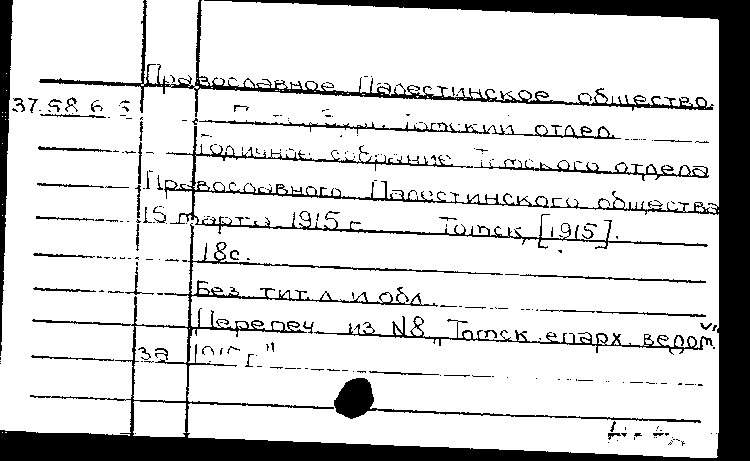 Православное Палестинское общество.
37.58 6 5 Петербург. Томский отдел.
Годичное собрание Томского отдела
Православного Палестинского общества
15 марта 1915 г. Томск, [1915].
18с.
Без тит. л. и обл.
Перепеч. из №8 „Томск. епарх. ведом.
за 1915 г."